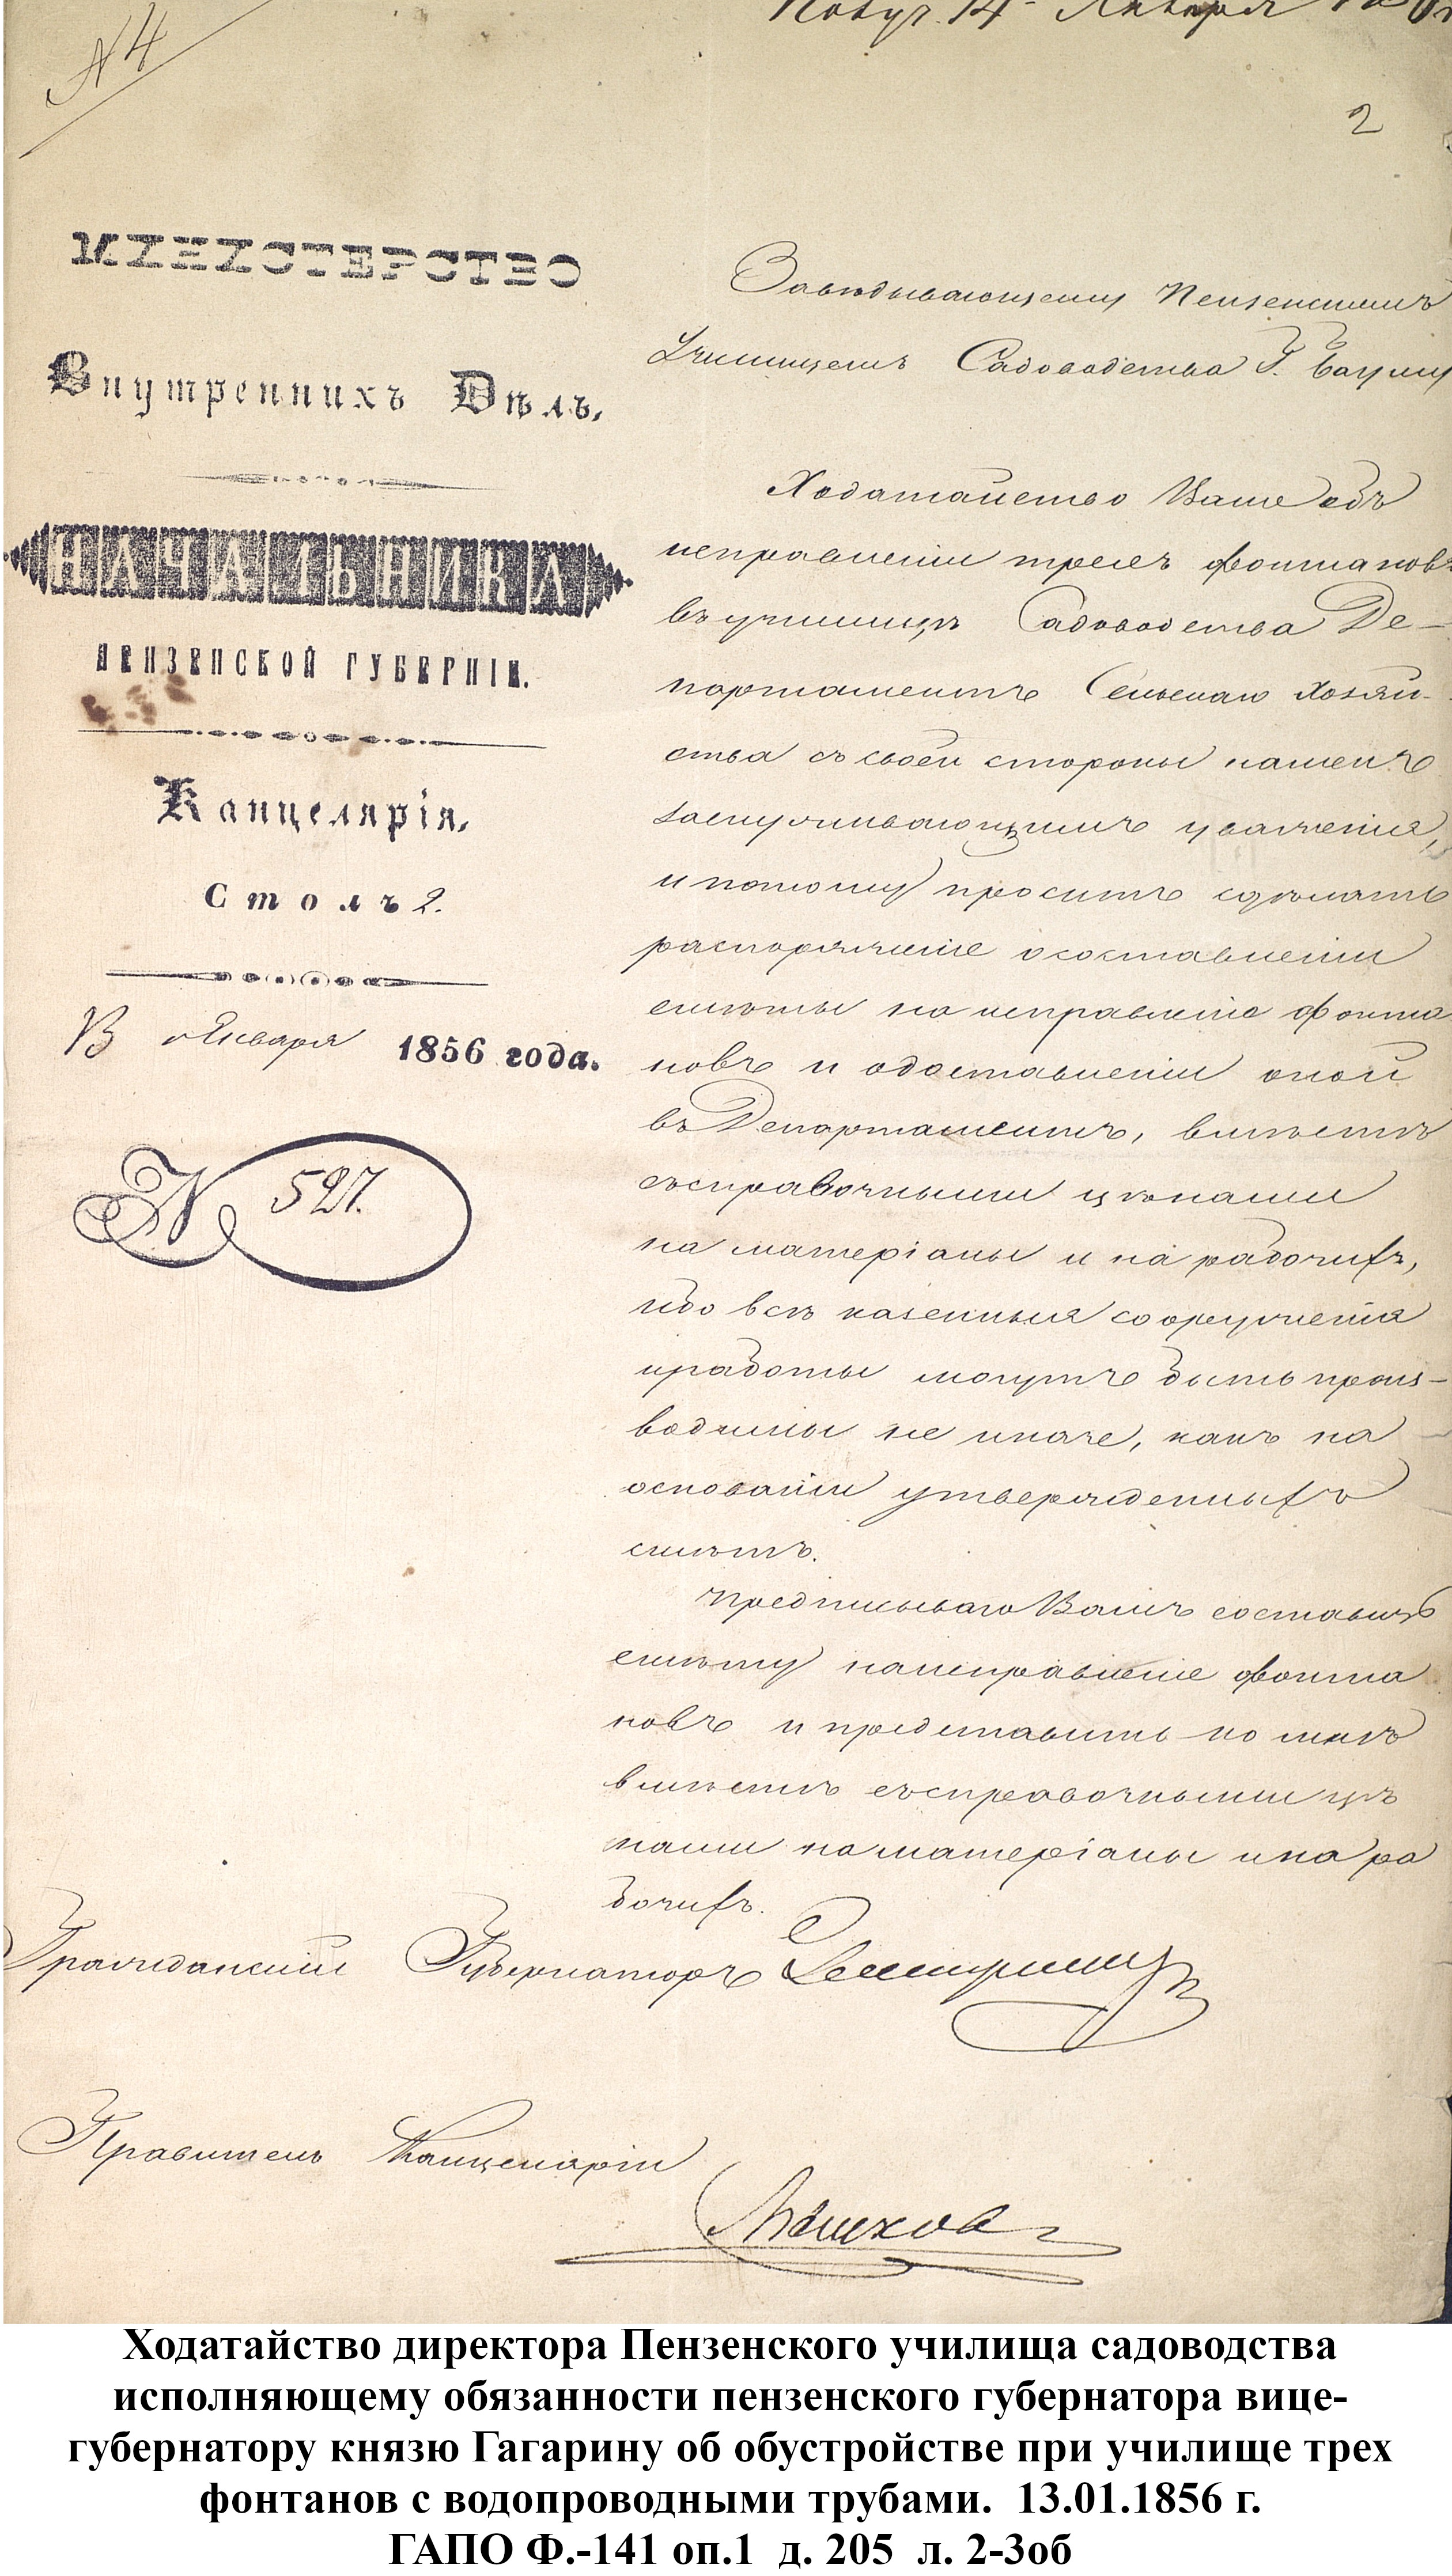 № 4
Получ. 14 Января
2
МИНИСТЕРСТВО
Внутреннихъ Дѣлъ,
НАЧАЛЬНИКА
ПЕНЗЕНСКОЙ ГУБЕРНІИ.
Канцелярія,
Столъ 2.
13 Января 1856 года.
№ 527.
Завѣдывающему Пензенскимъ
Училищемъ Садоводства Г.
Ходатайство Ваше объ
исправленіи трехъ фонтановъ
въ училищѣ Садоводства Де-
партаментъ Сельскаго Хозяй-
ства съ своей стороны нашелъ
заслуживающимъ уваженія,
и потому проситъ сдѣлать
распоряженіе о составленіи
смѣты на исправленіе фонта
новъ и о доставленіи оной
въ Департаментъ, вмѣстѣ
съ справочными цѣнами
на матеріалы и на рабочихъ,
ибо всѣ казенныя сооруженія
и работы могутъ быть произ-
водимы не иначе, какъ на
основаніи утвержденныхъ
смѣтъ.
Предписываю Вамъ составить
смѣту на исправленіе фонта
новъ и представить ко мнѣ
вмѣстѣ съ справочными цѣ
нами на матеріалы и на ра
бочихъ.
Гражданскій Губернаторъ
Правитель Канцеляріи
Ходатайство директора Пензенского училища садоводства
исполняющему обязанности пензенского губернатора вице-
губернатору князю Гагарину об обустройстве при училище трех
фонтанов с водопроводными трубами. 13.01.1856 г.
ГАПО Ф.-141 оп.1 д. 205 л. 2-3об